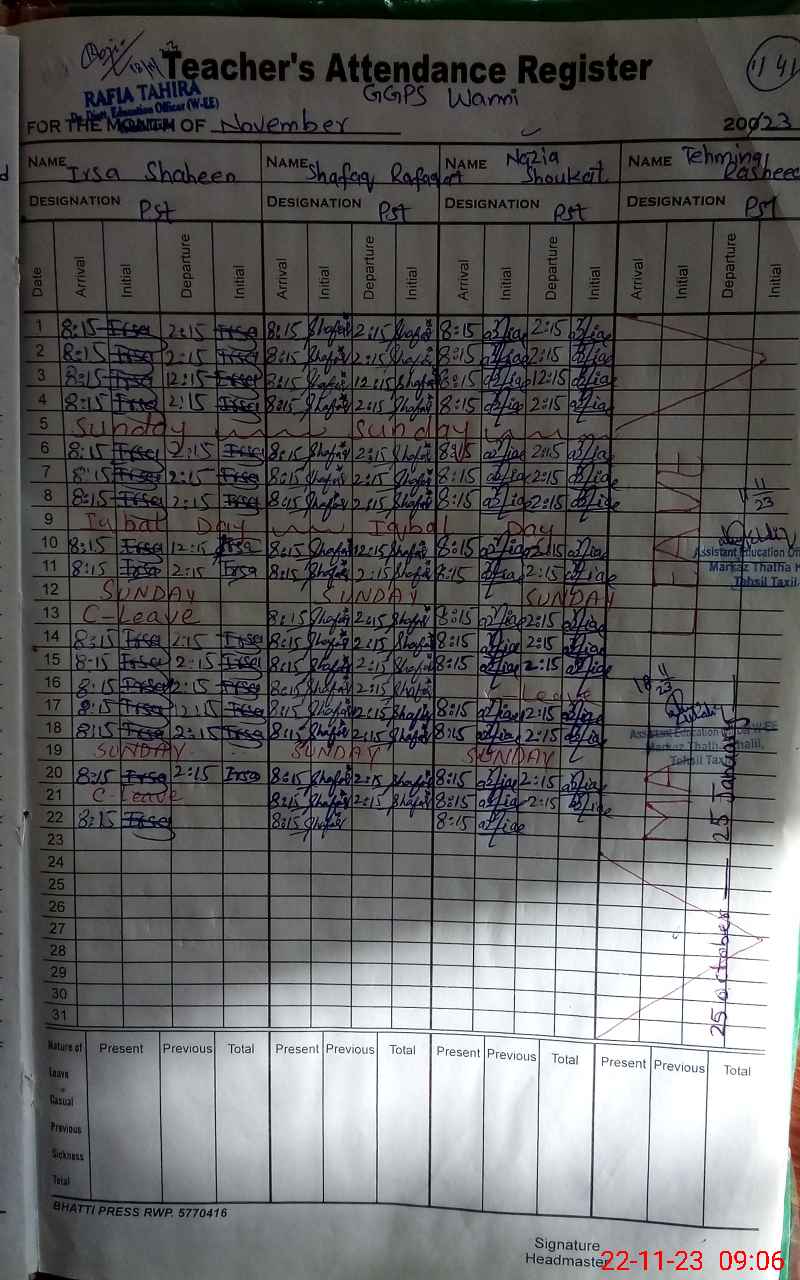 Teacher's Attendance Register
1141
RAFIA TAHIRA
GGPS Wanni
Dy. Distt. Education Officer (W-EE)
FOR THE MONTH OF November 200/23
NAME Irsa Shaheen NAME Shafaq Rafaqat NAME Nazia Shoukat NAME Tehmina Rasheed
DESIGNATION Pst DESIGNATION Pst DESIGNATION Pst DESIGNATION Pst
Date Arrival Initial Departure Initial Arrival Initial Departure Initial Arrival Initial Departure Initial Arrival Initial Departure Initial
1 8:15 Irsa 2:15 Irsa 8:15 Shafaq 2:15 Shafaq 8:15 2:15
2 8:15 Irsa 2:15 Irsa 8:15 Shafaq 2:15 Shafaq 8:15 2:15
3 8:15 Irsa 12:15 Irsa 8:15 Shafaq 12:15 Shafaq 8:15 12:15
4 8:15 Irsa 2:15 Irsa 8:15 Shafaq 2:15 Shafaq 8:15 2:15
5 Sunday Sunday
6 8:15 Irsa 2:15 Irsa 8:15 Shafaq 2:15 Shafaq 8:15 2:15
7 8:15 Irsa 2:15 Irsa 8:15 Shafaq 2:15 Shafaq 8:15 2:15
8 8:15 Irsa 2:15 Irsa 8:15 Shafaq 2:15 Shafaq 8:15 2:15
11/23
9 Iqbal Day Iqbal Day
10 8:15 Irsa 12:15 Irsa 8:15 Shafaq 12:15 Shafaq 8:15
Assistant Education
11 8:15 Irsa 2:15 Irsa 8:15 Shafaq 2:15 Shafaq 8:15 2:15
Markaz Thatha
Tehsil Taxil
12 SUNDAY SUNDAY SUNDAY
13 C-Leave 8:15 Shafaq 2:15 Shafaq 8:15 2:15
14 8:15 Irsa 2:15 Irsa 8:15 Shafaq 2:15 Shafaq 8:15 2:15
15 8:15 Irsa 2:15 Irsa 8:15 Shafaq 2:15 Shafaq 8:15 2:15
16 8:15 Irsa 2:15 Irsa 8:15 Shafaq 2:15 Shafaq Leave
18 11/23
17 8:15 Irsa 12:15 Irsa 8:15 Shafaq 12:15 Shafaq 8:15 12:15
18 8:15 Irsa 2:15 Irsa 8:15 Shafaq 2:15 Shafaq 8:15 2:15
19 SUNDAY SUNDAY SUNDAY
20 8:15 Irsa 2:15 Irsa 8:15 Shafaq 2:15 Shafaq 8:15 2:15
21 C-Leave 8:15 Shafaq 2:15 Shafaq 8:15 2:15
22 8:15 Irsa 8:15 Shafaq 8:15
23
24
25
26
27
28
29
30
31
LEAVE
25 October — 25 January
Nature of Leave Present Previous Total Present Previous Total Present Previous Total Present Previous Total
Casual
Previous
Sickness
Total
BHATTI PRESS RWP. 5770416
Signature
Headmaster
22-11-23 09:06